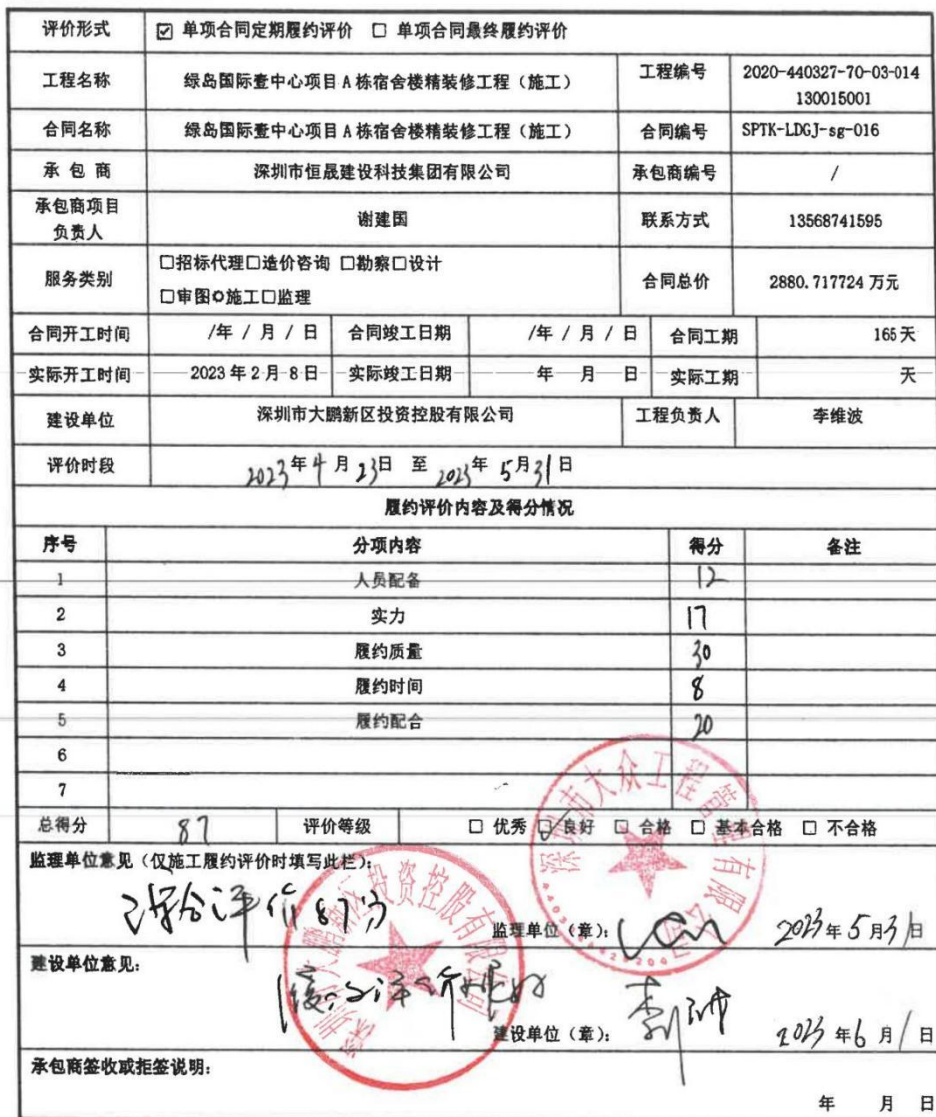 评价形式 ☑ 单项合同定期履约评价 □ 单项合同最终履约评价
工程名称 绿岛国际壹中心项目A栋宿舍楼精装修工程（施工） 工程编号 2020-440327-70-03-014
130015001
合同名称 绿岛国际壹中心项目A栋宿舍楼精装修工程（施工） 合同编号 SPTK-LDGJ-sg-016
承包商 深圳市恒晟建设科技集团有限公司 承包商编号 /
承包商项目
负责人 谢建国 联系方式 13568741595
服务类别 □招标代理□造价咨询 □勘察□设计
□审图✪施工□监理 合同总价 2880.717724 万元
合同开工时间 /年 / 月 / 日 合同竣工日期 /年 / 月 / 日 合同工期 165天
实际开工时间 2023年2月8日 实际竣工日期 年 月 日 实际工期 天
建设单位 深圳市大鹏新区投资控股有限公司 工程负责人 李维波
评价时段 2023年4月23日 至 2023年5月31日
履约评价内容及得分情况
序号 分项内容 得分 备注
1 人员配备 12
2 实力 17
3 履约质量 30
4 履约时间 8
5 履约配合 20
6
7
总得分 87 评价等级 □ 优秀 ☑ 良好 □ 合格 □ 基本合格 □ 不合格
监理单位意见（仅施工履约评价时填写此栏）：
综合评价87分
监理单位（章）： 2023年5月31日
深圳市大众工程管理有限公司
建设单位意见：
建设单位（章）： 2023年6月1日
承包商签收或拒签说明：
年 月 日